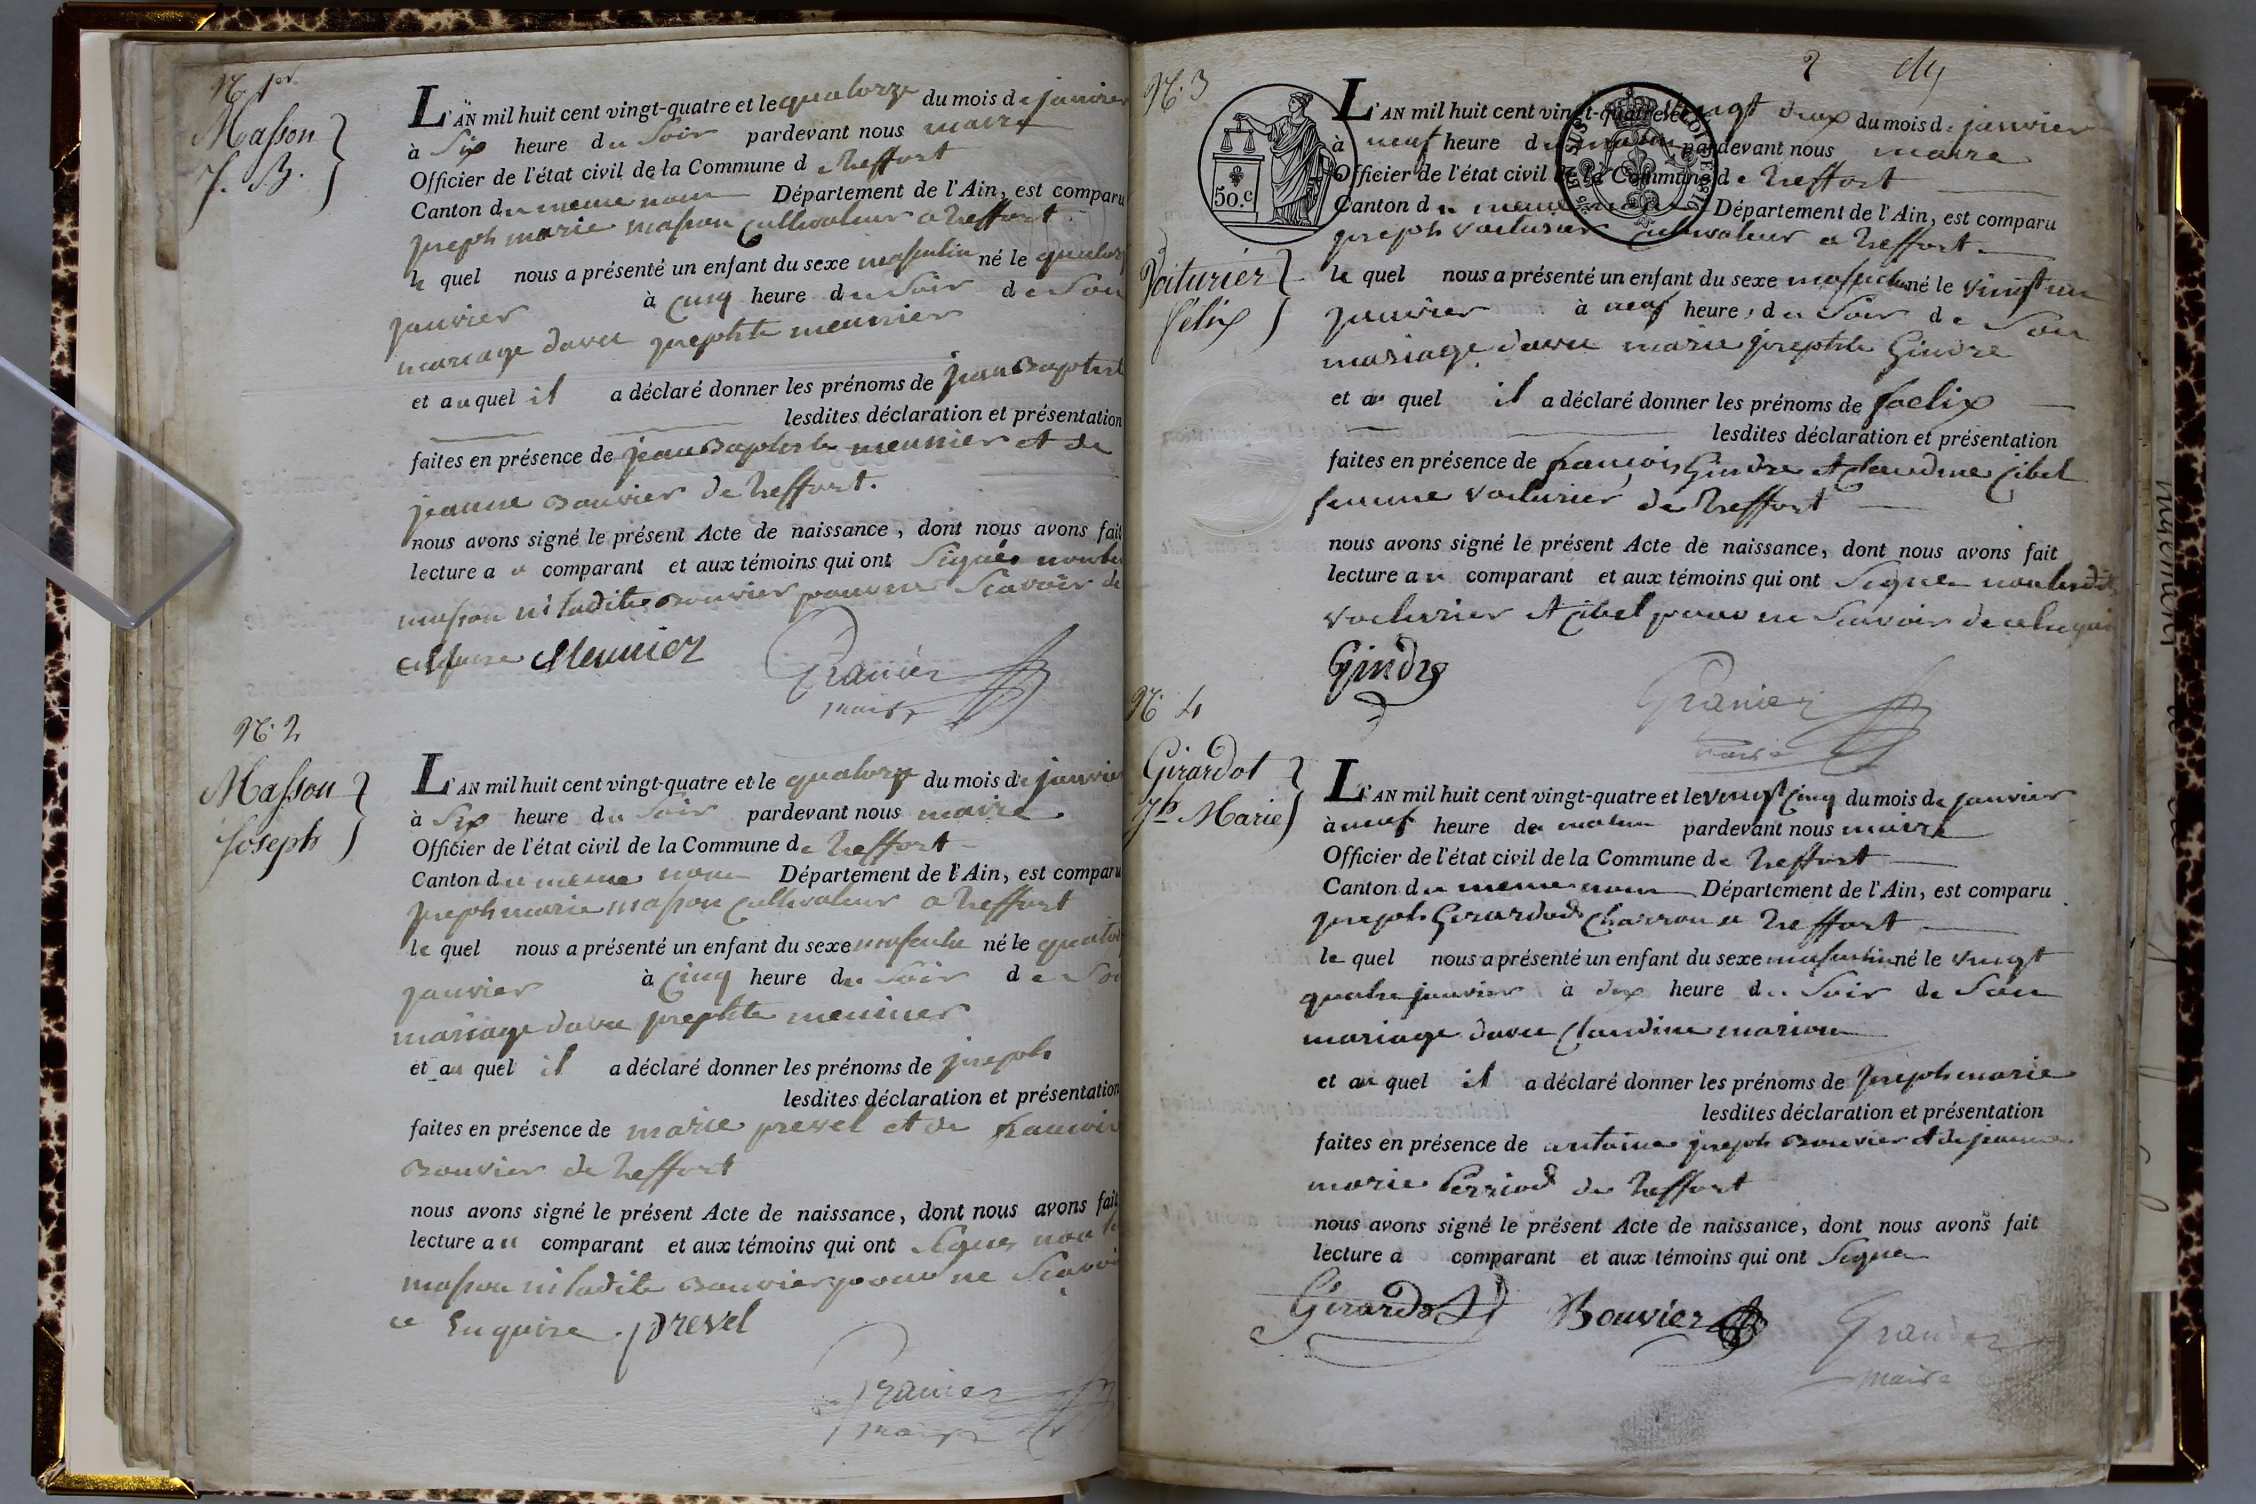 N. 1er
Masson
J. B.
L'AN mil huit cent vingt-quatre et le quatorze du mois de janvier
à Six heure du Soir pardevant nous maire
Officier de l'état civil de la Commune de Treffort
Canton du meme nom Département de l'Ain, est comparu
joseph marie masson Cultivateur a treffort
le quel nous a présenté un enfant du sexe masculin né le quatorze
janvier à Cinq heure du Soir de Son
mariage davec josephte meunier
et auquel il a déclaré donner les prénoms de jean Baptiste
lesdites déclaration et présentation
faites en présence de jean Baptiste meunier et de
jeanne Bouvier de treffort.
nous avons signé le présent Acte de naissance, dont nous avons fait
lecture au comparant et aux témoins qui ont Signés non le
masson ni ladite Bouvier pour ne Scavoir de
Meunier
Granier
maire
N. 2
Masson
Joseph
L'AN mil huit cent vingt-quatre et le quatorze du mois de janvier
à Six heure du Soir pardevant nous maire
Officier de l'état civil de la Commune de treffort
Canton du meme nom Département de l'Ain, est comparu
joseph marie masson Cultivateur a treffort
le quel nous a présenté un enfant du sexe masculin né le quatorze
janvier à Cinq heure du Soir de Son
mariage davec josephte meunier
et au quel il a déclaré donner les prénoms de joseph
lesdites déclaration et présentation
faites en présence de marie prevel et de francois
Bouvier de treffort
nous avons signé le présent Acte de naissance, dont nous avons fait
lecture au comparant et aux témoins qui ont Signés non le
masson ni ladite Bouvier pour ne Scavoir
ce Enquire. prevel
Granier
maire
2
N. 3
50. c
Voiturier
Félix
L'AN mil huit cent vingt-quatre et le vingt deux du mois de janvier
à neuf heure du matin pardevant nous maire
Officier de l'état civil de la Commune de treffort
Canton du meme nom Département de l'Ain, est comparu
joseph Voiturier Cultivateur a treffort
le quel nous a présenté un enfant du sexe masculin né le vingt un
janvier à neuf heure, du Soir de Son
mariage davec marie josephte Gindre
et au quel il a déclaré donner les prénoms de foelix
lesdites déclaration et présentation
faites en présence de francois Gindre et Claudine Cibel
femme Voiturier de treffort
nous avons signé le présent Acte de naissance, dont nous avons fait
lecture au comparant et aux témoins qui ont Signe non lesdits
Voiturier et Cibel pour ne Scavoir de ce Enquis
Gindre
Granier
maire
N. 4
Girardot
Jh Marie
L'AN mil huit cent vingt-quatre et le vingt Cinq du mois de janvier
à neuf heure du matin pardevant nous maire
Officier de l'état civil de la Commune de treffort
Canton du meme nom Département de l'Ain, est comparu
joseph Girardod Charron a treffort
le quel nous a présenté un enfant du sexe masculin né le vingt
quatre janvier à dix heure du Soir de Son
mariage davec Claudine marion
et au quel il a déclaré donner les prénoms de joseph marie
lesdites déclaration et présentation
faites en présence de antoine joseph Bouvier et de jeanne
marie Perriod de treffort
nous avons signé le présent Acte de naissance, dont nous avons fait
lecture a comparant et aux témoins qui ont Signe
Girardot Bouvier Granier
maire